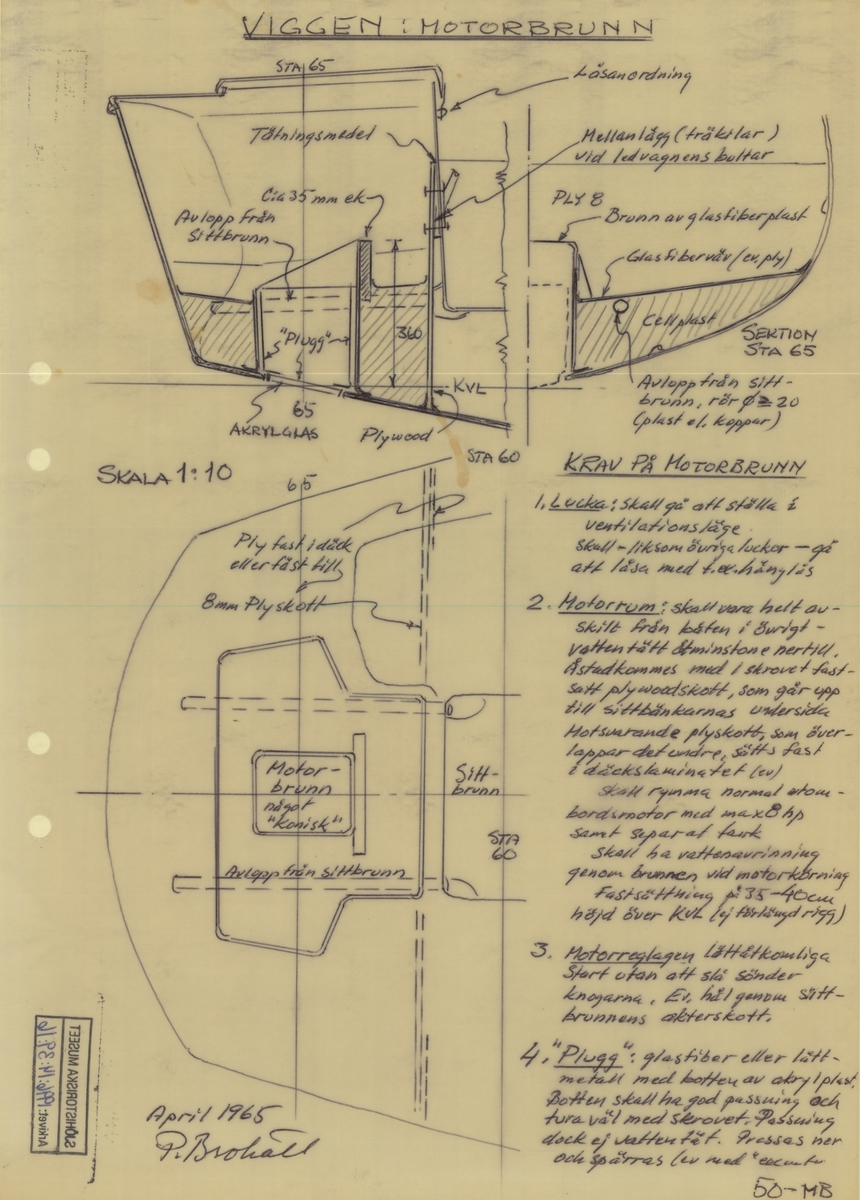 VIGGEN : MOTORBRUNN
STA 65
Låsanordning
Tätningsmedel
Mellanlägg (träkilar)
vid ledvagnens bultar
Cia 35 mm ek
PLY 8
Brunn av glasfiberplast
Avlopp från
Sittbrunn
Glasfiberväv (ev. ply)
"Plugg"
360
Cellplast
SEKTION
STA 65
KVL
65
AKRYLGLAS
Plywood
Avlopp från sitt-
brunn, rör φ ≥ 20
(plast el. koppar)
STA 60
SKALA 1:10
65
Ply fast i däck
eller fäst till
8mm Plyskott
Motor-
brunn
något
"Konisk"
Sitt-
brunn
STA
60
Avlopp från sittbrunn
KRAV PÅ MOTORBRUNN
1. Lucka: skall gå att ställa i
ventilationsläge
skall - liksom övriga luckor - gå
att låsa med t.ex. hänglås
2. Motorrum: skall vara helt av-
skilt från båten i övrigt -
vattentätt åtminstone nertill.
Åstadkommes med i skrovet fast-
satt plywoodskott, som går upp
till sittbänkarnas undersida
Motsvarande plyskott, som över-
lappar det undre, sätts fast
i däckslaminatet (ev)
Skall rymma normal utom-
bordsmotor med max 8 hp
samt separat tank
Skall ha vattenavrinning
genom brunnen vid motorkörning
Fastsättning på 35-40 cm
höjd över KVL (ej förlängd rigg)
3. Motorreglagen lättåtkomliga
Start utan att slå sönder
knogarna. Ev. hål genom sitt-
brunnens akterskott.
4. "Plugg": glasfiber eller lätt-
metall med botten av akrylplast.
Botten skall ha god passning och
tura väl med skrovet. Passning
dock ej vattentät. Pressas ner
och spärras (ev med
April 1965
P. Brohäll
SJÖHISTORISKA MUSEET
Arkivet
50-MB